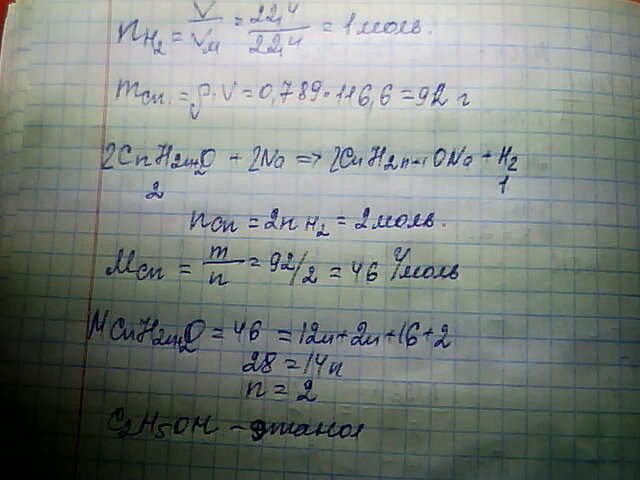 nH₂ = V/Vм = 22,4/22,4 = 1 моль.
mсп. = ρ·V = 0,789·116,6 = 92 г
2CnH2n+2O + 2Na => 2CnH2n+1ONa + H₂
2 1
nсп = 2nH₂ = 2 моль.
Mсп = m/n = 92/2 = 46 г/моль
MCnH2n+2O = 46 = 12n+2n+16+2
28 = 14n
n = 2
C₂H₅OH – этанол